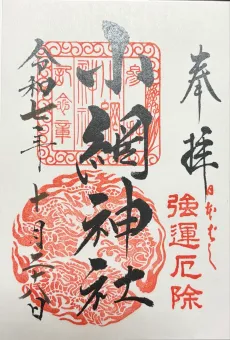 奉拝
日本ばし
強運厄除
小網神社
令和七年十月二十八日